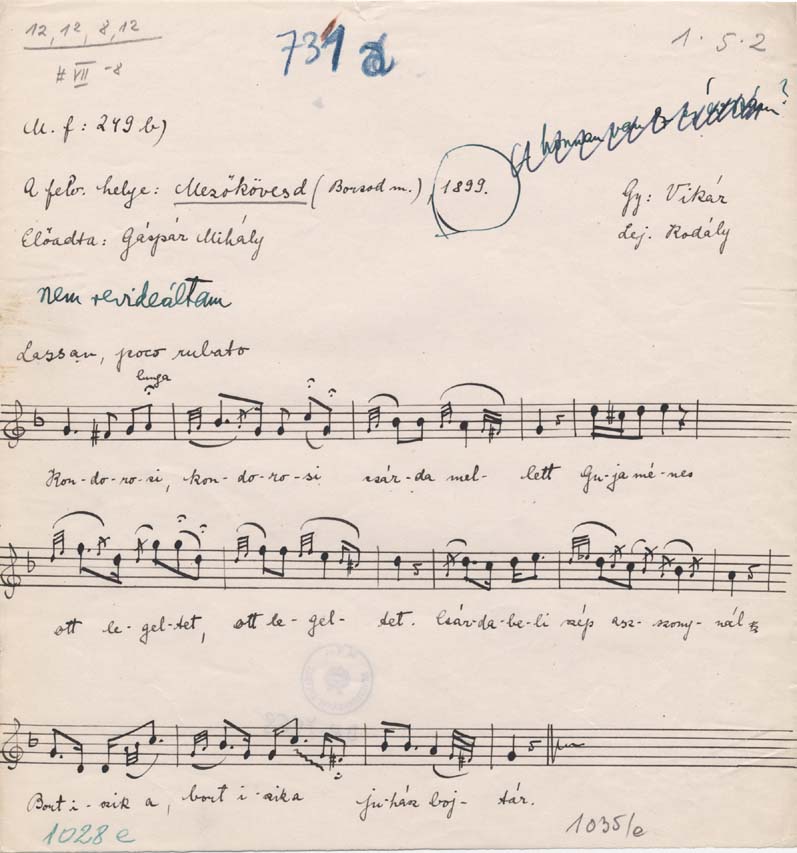 12, 12, 8, 12
731 a
1 . 5 . 2
# VII -8
M. f: 249 b)
A felv. helye: Mezőkövesd (Borsod m.), 1899.
Gy: Vikár
Előadta: Gáspár Mihály
Lej. Kodály
nem revideáltam
Lassan, poco rubato
lunga
Kon-do-ro-si, kon-do-ro-si csár-da mel-lett Gu-ja mé-nes
ott le-gel-tet, ott le-gel-tet. Csár-da-be-li szép asz-szony-nál
Bort i-szik a, bort i-szika ju-hász boj-tár.
1028 e
1035/e